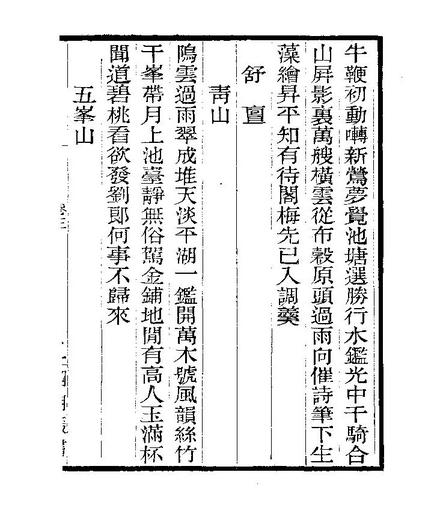 牛鞭初動囀新鶯夢覺池塘選勝行水鑑光中千騎合
山屛影裏萬艘橫雲從布穀原頭過雨向催詩筆下生
藻繪昇平知有待閣梅先已入調羹
舒亶
靑山
隖雲過雨翠成堆天淡平湖一鑑開萬木號風韻絲竹
千峯帶月上池臺靜無俗駕金鋪地閒有高人玉滿杯
聞道碧桃看欲發劉郞何事不歸來
五峯山